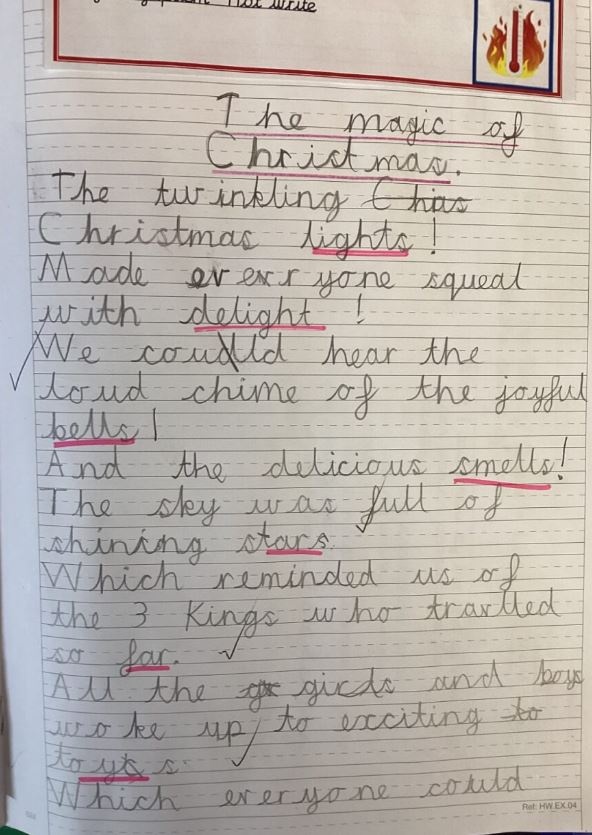 Not write
The magic of
Christmas.
The twinkling Chis
Christmas lights!
Made everyone squeal
with delight!
We could hear the
loud chime of the joyful
bells!
And the delicious smells!
The sky was full of
shining stars
Which reminded us of
the 3 Kings who travlled
so far.
All the girds and boys
woke up to exciting to
toys.
Which everyone could
Ref: HW.EX.04